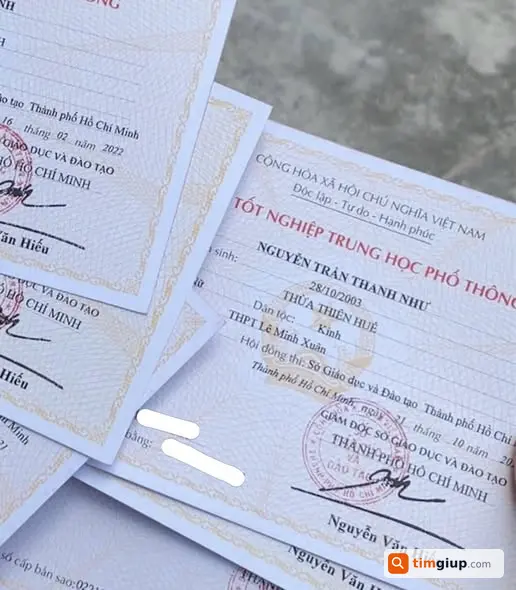 NH
ÔNG
H
Đào tạo Thành phố Hồ Chí Minh
16 tháng 02 năm 2022
GIÁO DỤC VÀ ĐÀO TẠO
PHỐ HỒ CHÍ MINH
Văn Hiếu
DỤC VÀ ĐÀO TẠO
HỒ CHÍ MINH
Hiếu
CỘNG HÒA XÃ HỘI CHỦ NGHĨA VIỆT NAM
Độc lập - Tự do - Hạnh phúc
TỐT NGHIỆP TRUNG HỌC PHỔ THÔNG
sinh: NGUYỄN TRẦN THANH NHƯ
28/10/2003
THỪA THIÊN HUẾ
Nữ Dân tộc: Kinh
THPT Lê Minh Xuân
Hội đồng thi: Sở Giáo dục và Đào tạo Thành phố Hồ Chí
Thành phố Hồ Chí Minh, ngày 21 tháng 10 năm 20
GIÁM ĐỐC SỞ GIÁO DỤC VÀ ĐÀO TẠO
THÀNH PHỐ HỒ CHÍ MINH
bằng:
Nguyễn Văn Hiế
Nguyễn Văn
số cấp bản sao:02
timgiup.com